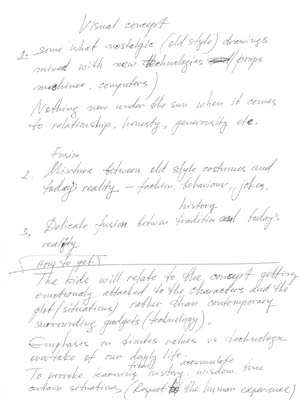 Visual concept
1. some what nostalgic (old style) drawings
mixed with new technologies props
machines, computers)
Nothing new under the sun when it comes
to relationship, honesty, generousity etc.
Fusion
2. Mixture between old style costumes and
today's reality – fashion, behaviour, jokes,
history
3. Delicate fusion between tradition and today's
reality
How to get
The kids will relate to the concept getting
emotionaly attached to the characters and the
plot (situations) rather than contemporary
surrounding gadgets (technology).
Emphasis on values vs
overtake of our dayly life.
To provoke learning history, accumulate wisdom
certain situations (Respect the human experience)